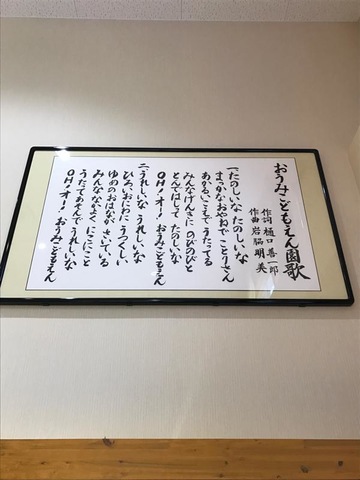 おうみこどもえん園歌
作詞 樋口善一郎
作曲 岩脇明美
一、たのしいな たのしいな
まっかなおやねで ことりさん
あかるいこえで うたってる
みんなげんきに のびのびと
とんではしって たのしいな
OH!オー! おうみこどもえん
二、うれしいな うれしいな
ひろいおにわに うつくしい
ゆめのおはなが さいている
みんななかよく にこにこと
うたてあそんで うれしいな
OH!オー! おうみこどもえん